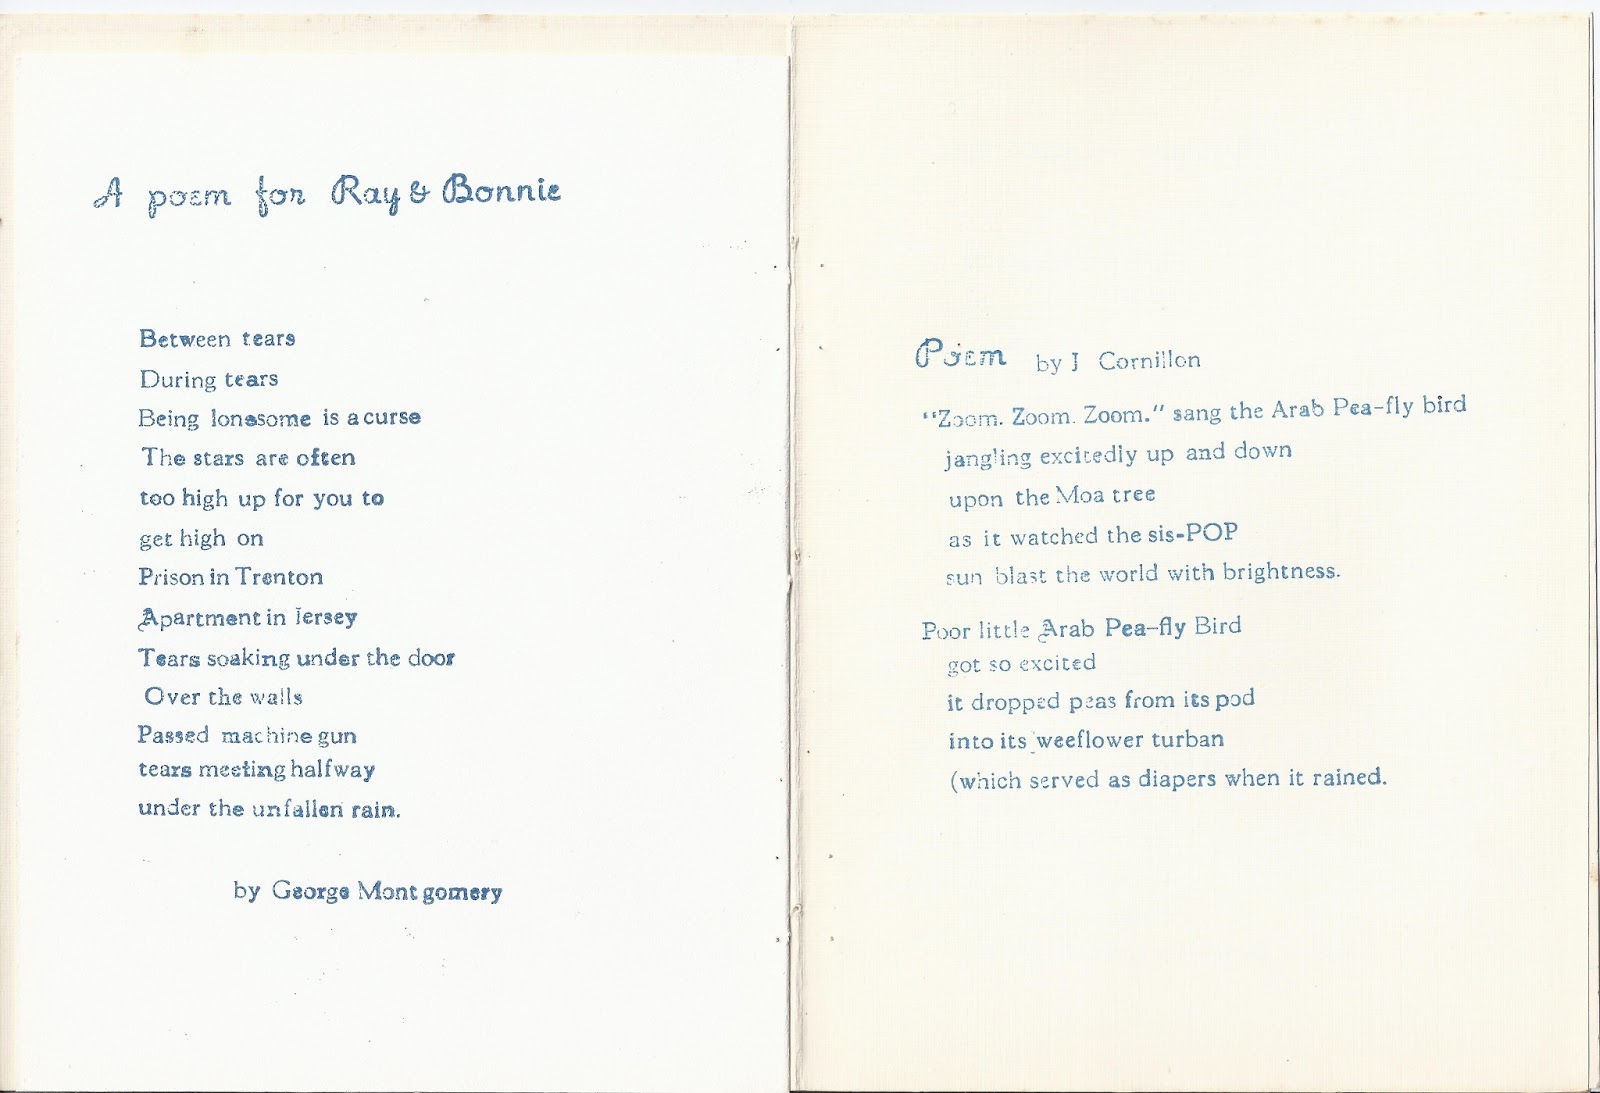 A poem for Ray & Bonnie
Between tears
During tears
Being lonesome is a curse
The stars are often
too high up for you to
get high on
Prison in Trenton
Apartment in Jersey
Tears soaking under the door
Over the walls
Passed machine gun
tears meeting halfway
under the unfallen rain.
by George Montgomery
Poem by J Cornillon
"Zoom. Zoom. Zoom." sang the Arab Pea-fly bird
jangling excitedly up and down
upon the Moa tree
as it watched the sis-POP
sun blast the world with brightness.
Poor little Arab Pea-fly Bird
got so excited
it dropped peas from its pod
into its weeflower turban
(which served as diapers when it rained.